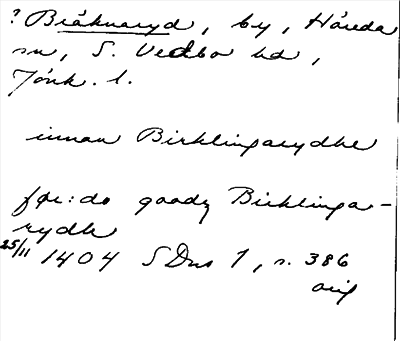 ? Bråknaryd, by, Håreda
sn, S. Vedbo hd,
Jönk. l.
innan Birklingarydhe
før: do goodz Birklinga-
rydh
25/11 1404 SDns 1, s. 386
orig